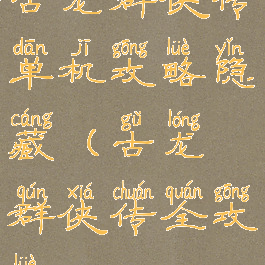 古龙群侠传
dān jī gōng lüè yǐn
单机攻略隐
cáng gǔ lóng
藏(古龙
qún xiá chuán quán gōng
群侠传全攻
lüè